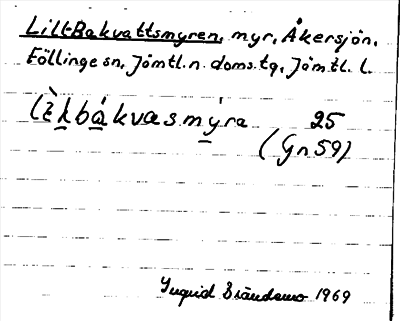 Lill-Bakvattsmyren, myr, Åkersjön,
Föllinge sn, Jämtl. n. doms.tg, Jämtl. l.
bákvasmýra 25
(Gn 59)
Ingrid Brändemo 1969